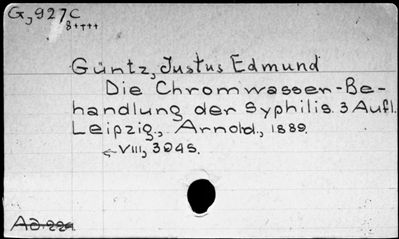 G,927C
8+++++
Güntz, Justus Edmund
Die Chromwasser-Be-
handlung der Syphilis. 3 Aufl.
Leipzig., Arnold., 1889.
←VIII, 304S.
Ad. 224